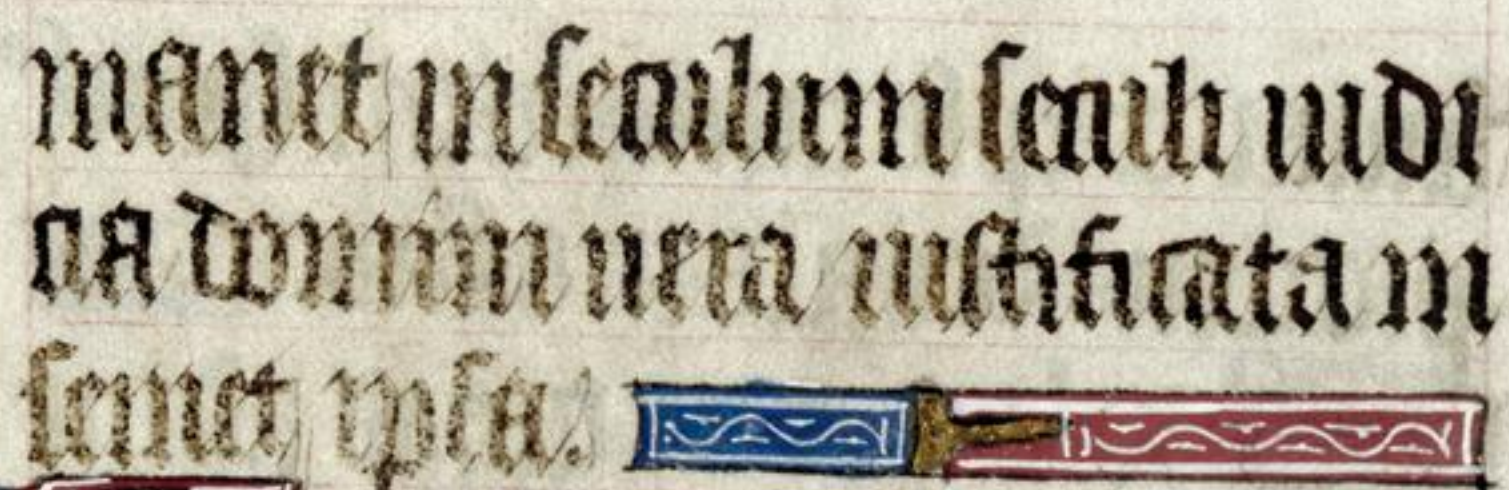 manet in seculum seculi iudi
cia domini uera iustificata in
semet ipsa.